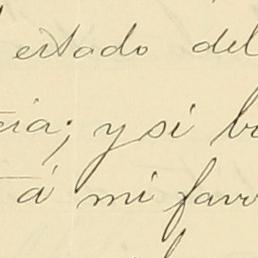 estado del
cia; y si b
á mi favo